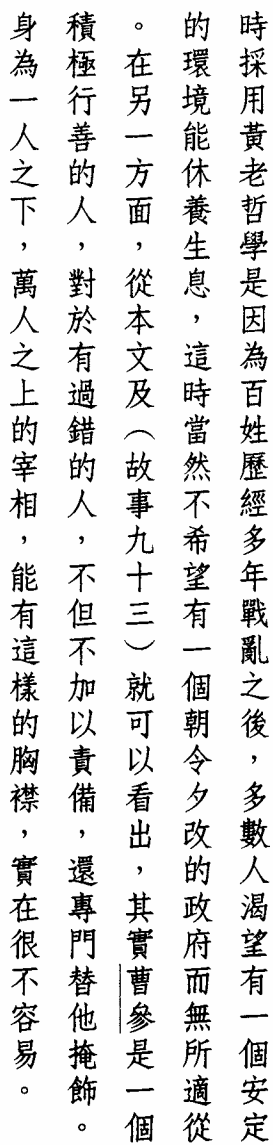 時採用黃老哲學是因為百姓歷經多年戰亂之後，多數人渴望有一個安定
的環境能休養生息，這時當然不希望有一個朝令夕改的政府而無所適從
。在另一方面，從本文及（故事九十三）就可以看出，其實曹參是一個
積極行善的人，對於有過錯的人，不但不加以責備，還專門替他掩飾。
身為一人之下，萬人之上的宰相，能有這樣的胸襟，實在很不容易。